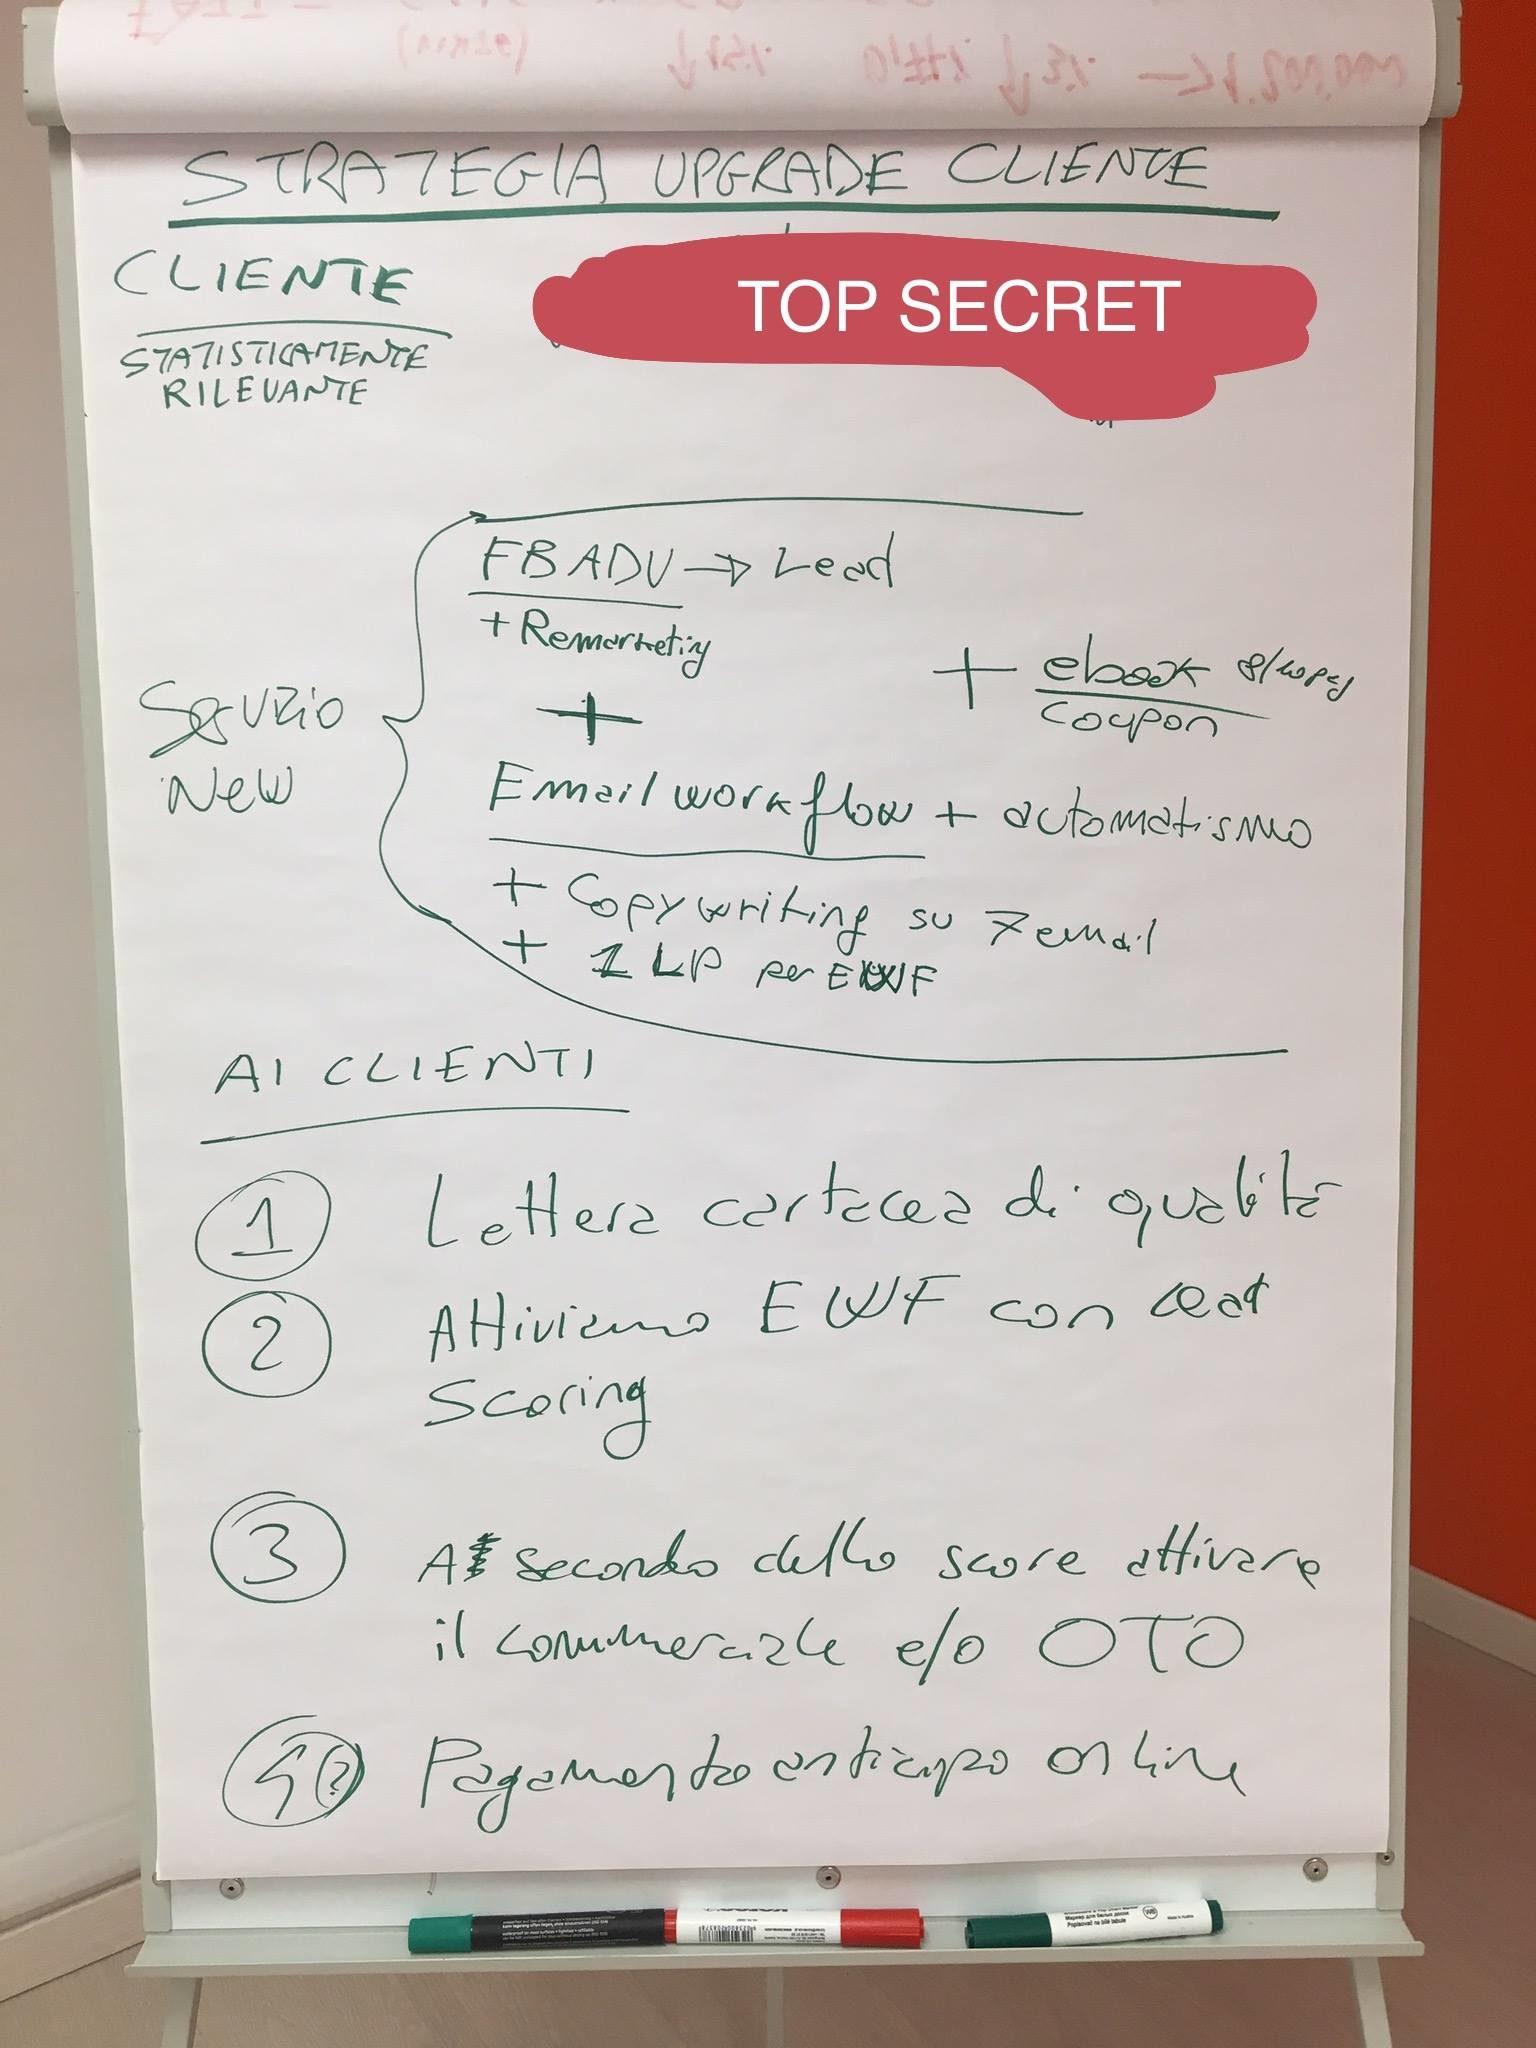 STRATEGIA UPGRADE CLIENTE
CLIENTE
TOP SECRET
STATISTICAMENTE
RILEVANTE
FB ADV → Lead
+ Remarketing
+ ebook
coupon
+
Servizio
New
Email workflow + automatismo
+ Copywriting su 7 email
+ 1 LP per EWF
AI CLIENTI
1 Lettera cartacea di qualità
2 Attiviamo EWF con lead
scoring
3 A secondo dello score attivare
il commerciale e/o OTO
4(?) Pagamento anticipo online